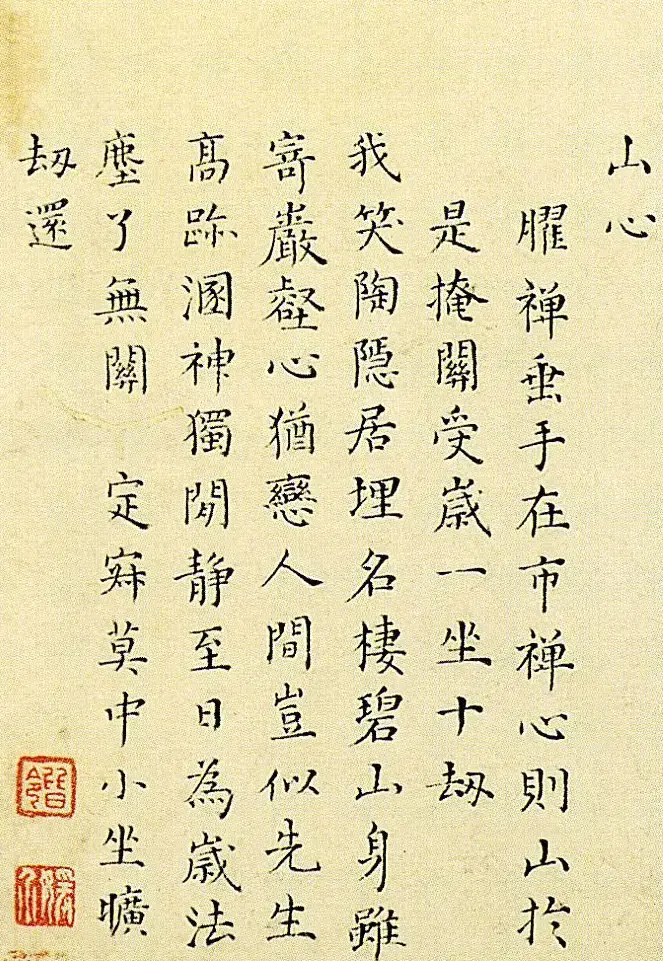 山心
臞禪垂手在市禪心則山於
是掩關受歲一坐十劫
我笑陶隱居埋名棲碧山身雖
寄巖壑心猶戀人間豈似先生
高跡溷神獨閒靜至日為歲法
塵了無關 定寂莫中小坐曠
劫還